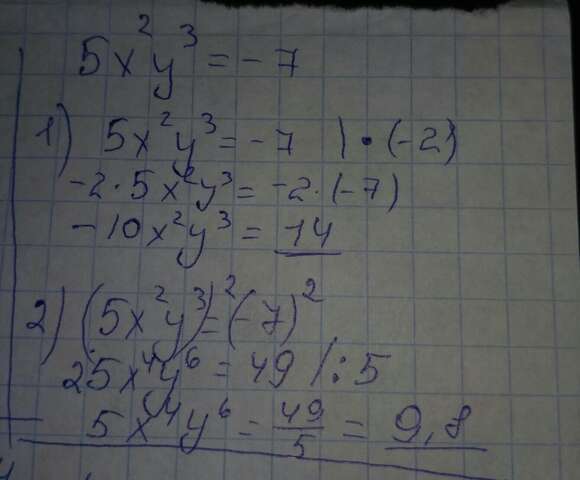 5x²y³ = -7
1) 5x²y³ = -7 | • (-2)
-2 · 5x²y³ = -2 · (-7)
-10x²y³ = 14
2) (5x²y³)² = (-7)²
25x⁴y⁶ = 49 /: 5
5x⁴y⁶ = 49/5 = 9,8